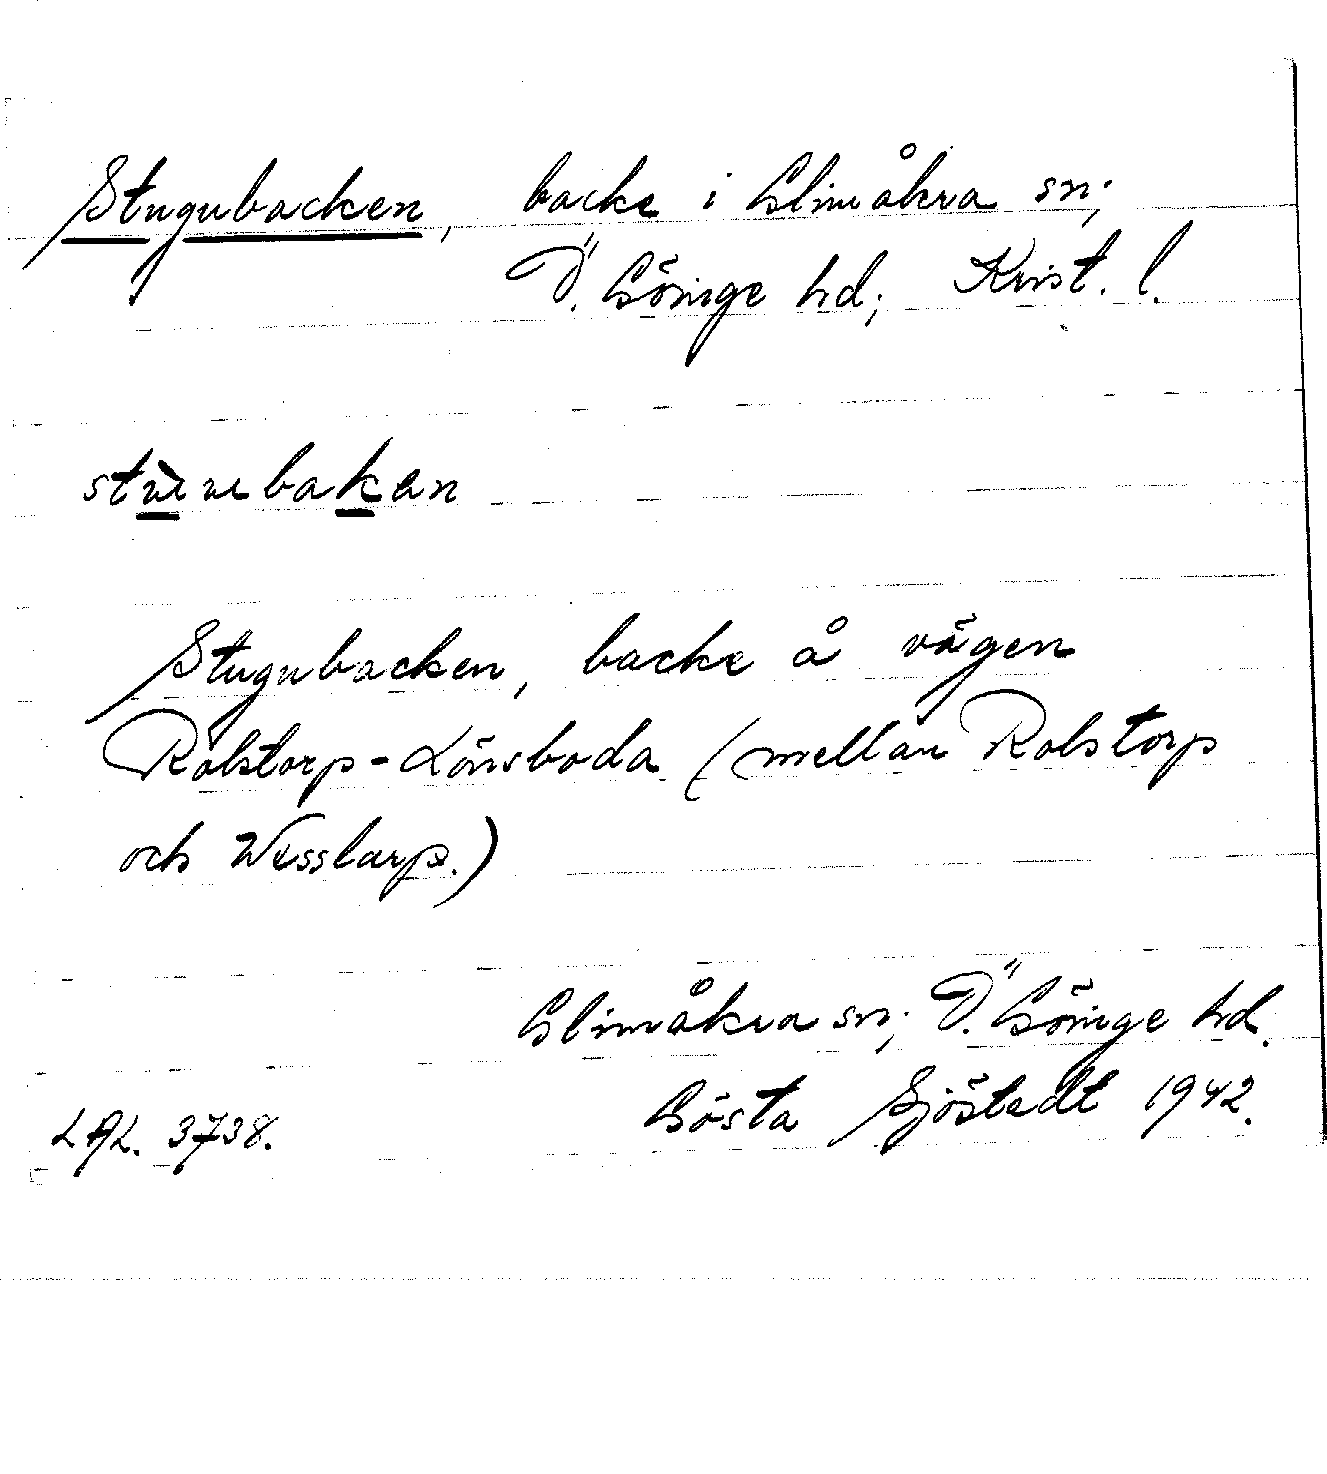 Stugubacken, backe i Glimåkra sn;
Ö. Göinge hd; Krist. l.
Stugubacken, backe å vägen
Rolstorp-Lönsboda (mellan Rolstorp
och Wesslarp.)
Glimåkra sn; Ö. Göinge hd.
Gösta Sjöstedt 1942.
LAL. 3738.